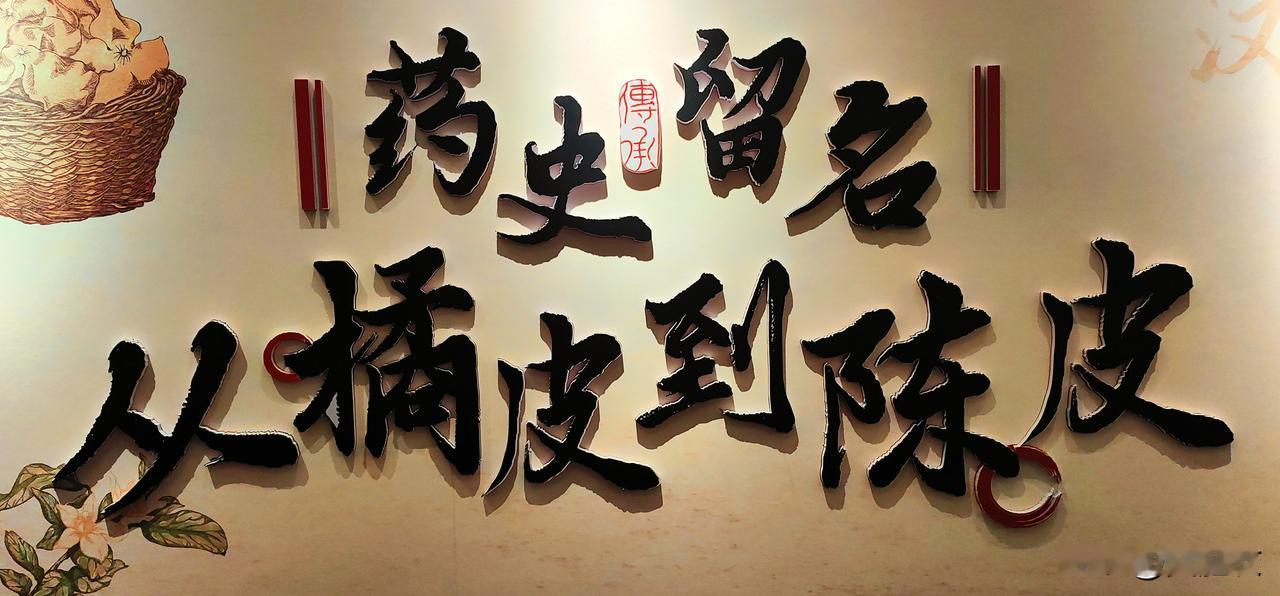 药史留名
傳承
从橘皮到陈皮
汉